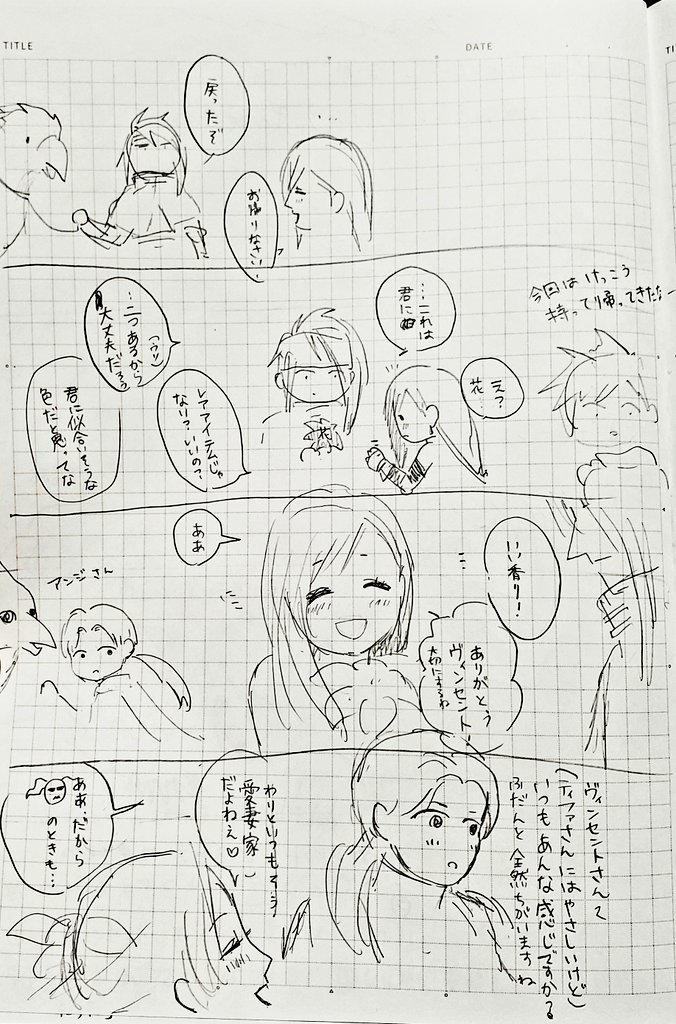 TITLE
DATE
戻ったぞ
お帰りなさい！
今回はけっこう
持って帰ってきたな
…これは
君に
え？
花
レアアイテムじゃ
ない？いいの？
…二つあるから
大丈夫だろう
(ウソ)
君に似合いそうな
色だと思ってな
いい香り！
ありがとう
ヴィンセント！
大切にするわ
ああ
アンジさん
ヴィンセントさんて
(ティファさんにはやさしいけど)
いつもあんな感じですか？
ふだんと全然ちがいますね
わりといつもそう
愛妻家
だよねぇ♡
ああ、だから
のときも…